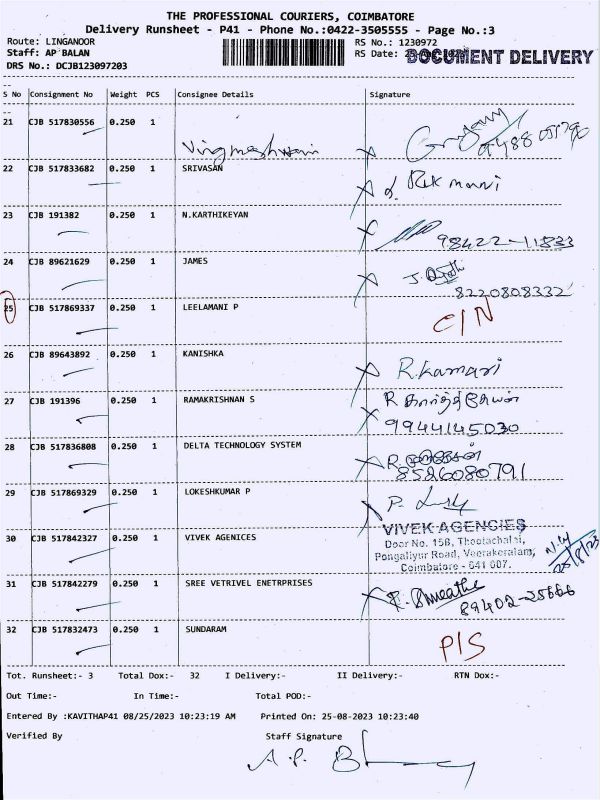 THE PROFESSIONAL COURIERS, COIMBATORE
Delivery Runsheet - P41 - Phone No.:0422-3505555 - Page No.:3
Route: LINGANOOR RS No.: 1230972
Staff: AP BALAN RS Date:
DOCUMENT DELIVERY
DRS No.: DCJB123097203
S No Consignment No Weight PCS Consignee Details Signature
21 CJB 517830556 0.250 1
22 CJB 517833682 0.250 1 SRIVASAN
23 CJB 191382 0.250 1 N.KARTHIKEYAN
98422-11833
24 CJB 89621629 0.250 1 JAMES
8220808332
25 CJB 517869337 0.250 1 LEELAMANI P
26 CJB 89643892 0.250 1 KANISHKA
R.Kamari
27 CJB 191396 0.250 1 RAMAKRISHNAN S
R கார்த்திகேயன்
9944145030
28 CJB 517836808 0.250 1 DELTA TECHNOLOGY SYSTEM
8526080791
29 CJB 517869329 0.250 1 LOKESHKUMAR P
30 CJB 517842327 0.250 1 VIVEK AGENICES
VIVEK AGENCIES
Door No. 15B, Theetachalai,
Pongaliyur Road, Veerakeralam,
Coimbatore - 641 007.
25/8/23
31 CJB 517842279 0.250 1 SREE VETRIVEL ENETRPRISES
89402-25666
32 CJB 517832473 0.250 1 SUNDARAM
P/S
Tot. Runsheet:- 3 Total Dox:- 32 I Delivery:- II Delivery:- RTN Dox:-
Out Time:- In Time:- Total POD:-
Entered By :KAVITHAP41 08/25/2023 10:23:19 AM Printed On: 25-08-2023 10:23:40
Verified By Staff Signature